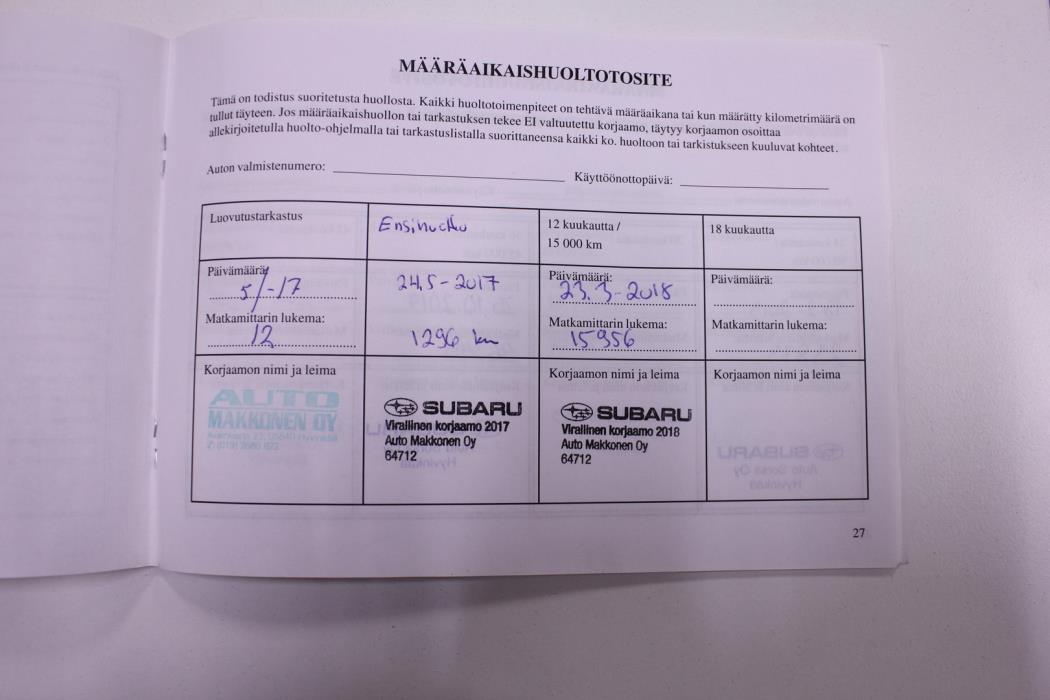 MÄÄRÄAIKAISHUOLTOTOSITE
Tämä on todistus suoritetusta huollosta. Kaikki huoltotoimenpiteet on tehtävä määräaikana tai kun määrätty kilometrimäärä on
tullut täyteen. Jos määräaikaishuollon tai tarkastuksen tekee EI valtuutettu korjaamo, täytyy korjaamon osoittaa
allekirjoitetulla huolto-ohjelmalla tai tarkastuslistalla suorittaneensa kaikki ko. huoltoon tai tarkistukseen kuuluvat kohteet.
Auton valmistenumero: Käyttöönottopäivä:
Luovutustarkastus
Ensihuolto
12 kuukautta /
15 000 km
18 kuukautta
Päivämäärä:
5/-17
Matkamittarin lukema:
12
24.5-2017
1296 km
Päivämäärä:
23.3-2018
Matkamittarin lukema:
15956
Päivämäärä:
Matkamittarin lukema:
Korjaamon nimi ja leima
AUTO
MAKKONEN OY
SUBARU
Virallinen korjaamo 2017
Auto Makkonen Oy
64712
Korjaamon nimi ja leima
SUBARU
Virallinen korjaamo 2018
Auto Makkonen Oy
64712
Korjaamon nimi ja leima
27